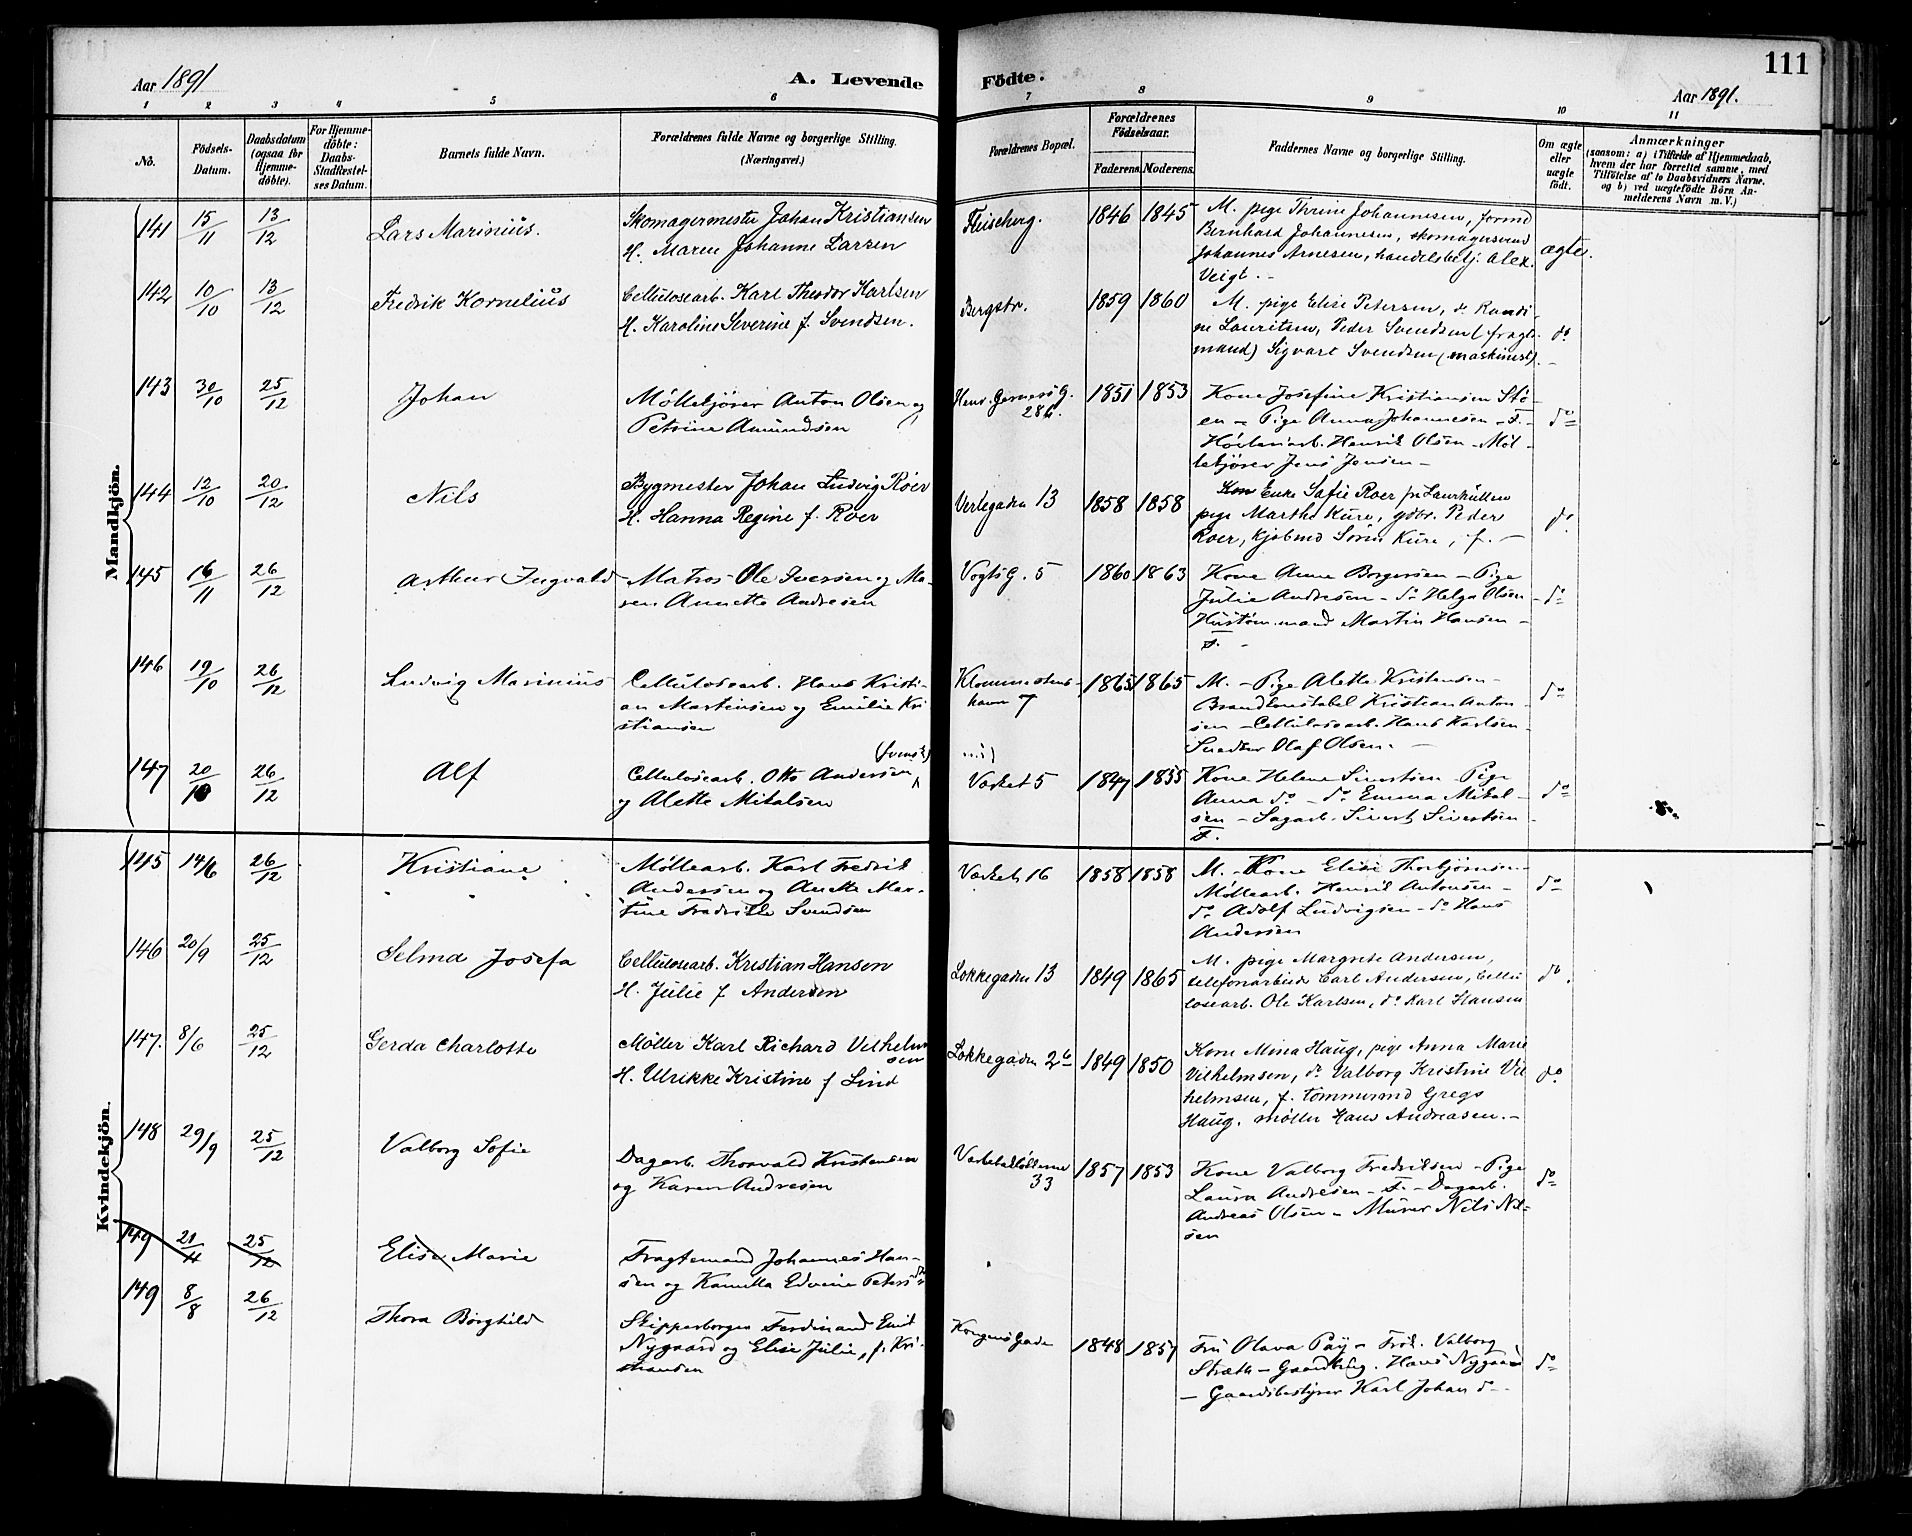 111
Aar 1891
A. Levende
Födte.
Aar 1891.
1 2 3 4 5 6 7 8 9 10 11
No.
Födsels-
Datum.
Daabsdatum
(ogsaa for
Hjemme-
döbte).
For Hjemme-
döbte:
Daabs-
Stadfæstel-
ses Datum.
Barnets fulde Navn.
Forældrenes fulde Navne og borgerlige Stilling.
(Næringsvei.)
Forældrenes Bopæl.
Forældrenes
Födselsaar.
Faderens. Moderens.
Faddernes Navne og borgerlige Stilling.
Om ægte
eller
uægte
födt.
Anmærkninger
(saasom: a) i Tilfælde af Hjemmedaab,
hvem der har forrettet samme, med
Tilföielse af to Daabsvidners Navne,
og b) ved uægtefödte Börn An-
melderens Navn m. V.)
Mandkjön.
141 15/11 13/12 Lars Marinius.
Skomagermester Johan Kristiansen
H. Maren Johanne Larsen
Fleischerg. 1846 1845
M. pige Thrine Johannesen, formd
Bernhard Johannesen, skomagersvend
Johannes Arnesen, handelsbetj. Alex.
Veigt. -
ægte.
142 10/10 13/12 Fredrik Kornelius
Cellulosearb. Karl Theodor Karlsen
H. Karoline Severine f. Svendsen.
Bergstr. 1859 1860
M. pige Elise Petersen, do Randi-
ne Lauritsen, Peder Svendsen (fragte-
mand) Sigvart Svendsen (maskinist). -
do
143 30/10 25/12 Johan
Møllekjører Anton Olsen og
Petrine Amundsen
Henr. Gerners G.
286. 1851 1853
Kone Josefine Kristiansen Stø-
en - Pige Anna Johannesen - F. -
Høvleriarb. Henrik Olsen - Møl-
lekjører Jens Jensen -
do
144 12/10 20/12 Nils
Bygmester Johan Ludvig Roer
H. Hanna Regine f. Roer
Verlegaden 13 1858 1858
Enke Sofie Roer
pige Marthe Kure, gdbr. Peder
Roer, kjøbmd Søren Kure, f. -
do
145 16/11 26/12 Arthur Ingvald
Matros Ole Iversen og Ma-
ren Annette Andresen
Vogts G. 5 1860 1863
Kone Anne Borgersen - Pige
Julie Andresen - do Helga Olsen -
Hustømmermand Martin Hansen -
F. -
do
146 19/10 26/12 Ludvig Marinius
Cellulosearb. Hans Kristi-
an Martinsen og Emilie Kri-
stiansen
havn 7 1865 1865
M. - Pige Alette Kristensen -
Brandkonstabel Kristian Anton-
sen - Cellulosearb. Hans Karlsen
Snedker Olaf Olsen. -
do
147 20/10 26/12 Alf
(svensk)
Cellulosearb. Otto Andersen
og Alette Mikalsen
Værket 5 1847 1855
Kone Helene Sivertsen - Pige
Anna do - do Emma Mikal-
sen - Sagarb. Sivert Sivertsen -
F.
do
Kvindekjön.
145 14/6 26/12 Kristiane
Møllearb. Karl Fredrik
Andersen og Anette Mar-
tine Fredrikke Svendsen
Værket 16 1858 1858
M. - Kone Elise Thorbjørnsen -
Møllearb. Henrik Antonsen -
do Adolf Ludvigsen - do Hans
Andersen
do
146 20/9 25/12 Selma Josefa
Cellulosearb. Kristian Hansen
H. Julie f Andersen
Lokkegaden 13 1849 1865
M. pige Margrete Andersen,
telefonarbeider Carl Andersen, Cellu-
losearb. Ole Karlsen, do Karl Hansen
do.
147. 8/6 25/12 Gerda Charlotte
Møller Karl Richard Vilhelm
sen
H. Ulrikke Kristine f Lind
Lokkegaden 26 1849 1850
Kone Mina Haug, pige Anna Marie
Vilhelmsen, do Valborg Kristine Vil-
helmsen, f. tømmermd Gregs
Haug, møller Hans Andreasen. -
do
148 29/9 25/12 Valborg Sofie
Dagarb. Thorvald Kristensen
og Karen Andresen
33 1857 1853
Kone Valborg Fredriksen - Pige
Laura Andresen - F. - Dagarb.
Andreas Olsen - Murer Nils Nil-
sen
do
149 21/11 25/12 Elise Marie
Fragtemand Johannes Han-
sen og Kamilla Edvine Peters
149 8/8 26/12 Thora Borghild
Skipperborger Ferdinand Emil
Nygaard og Elise Julie, f. Kri-
stiansen
Kongens Gade 1848 1857
Fru Olava Pay - Frøk. Valborg
Stræth - Gaardbrug. Hans Nygaard
- Gaardsbestyrer Karl Johan do -
do